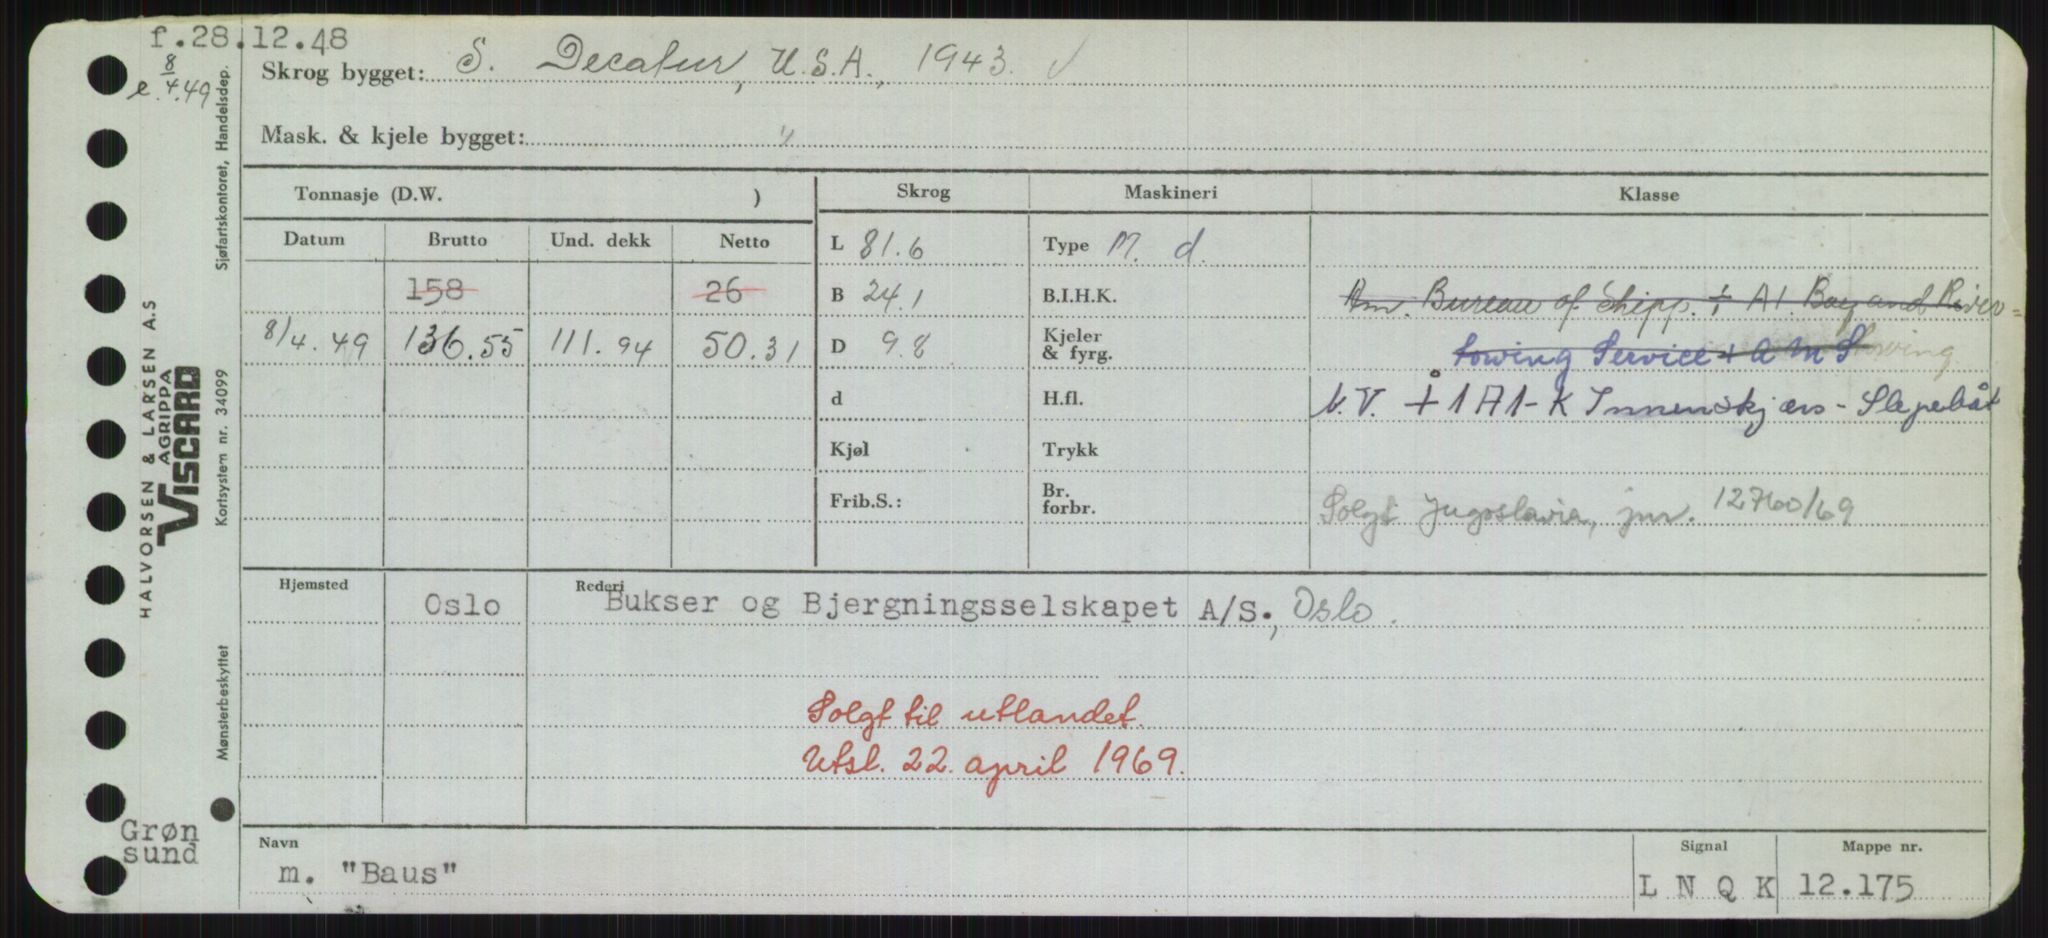 f.28.12.48
e. 8/4.49
Skrog bygget: S. Decatur, U.S.A., 1943.
Mask. & kjele bygget: "
Tonnasje (D.W. )
Skrog
Maskineri
Klasse
Datum Brutto Und. dekk Netto
L 81.6
Type M. d.
158 26
B 24.1
B.I.H.K.
Am. Bureau of Shipp. + A1. Bay and River=
8/4.49 136.55 111.94 50.31
D 9.8
Kjeler & fyrg.
towing Service + A M S
d
H.fl.
N.V. + 1A1-K Innenskjærs - Slepebåt
Kjøl
Trykk
Frib.S.:
Br. forbr.
Solgt Jugoslavia, jnr. 12760/69
Hjemsted Rederi
Oslo Bukser og Bjergningsselskapet A/S., Oslo.
Solgt til utlandet.
Utsl. 22. april 1969.
Navn
m. "Baus"
Signal
L N Q K
Mappe nr.
12.175
Grøn
sund
HALVORSEN & LARSEN A.S
AGRIPPA
VISCARD
Sjøfartskontoret, Handelsdep.
Kortsystem nr. 34099
Mønsterbeskyttet